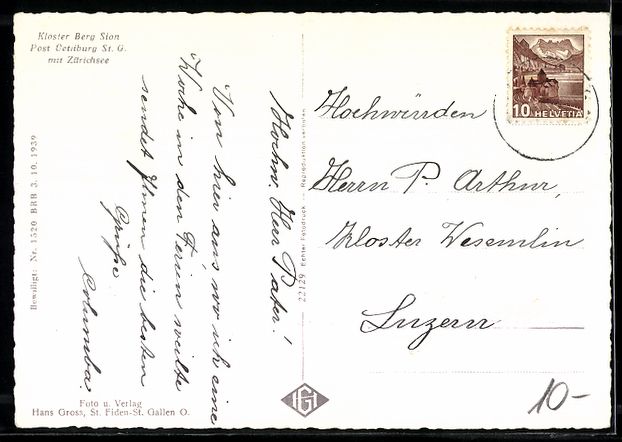 Kloster Berg Sion
Post Uetliburg St. G.
mit Zürichsee
Bewilligt: Nr. 1520 BRB 3. 10. 1939
Hochw. Herr Pater!
Von hier aus wo ich eine
Woche in den Ferien weilte
sendet Ihnen die besten
Grüße
Columba.
Foto u. Verlag
Hans Gross, St. Fiden-St. Gallen O.
22129 Echter Fotodruck - Reproduktion verboten
HGI
10 HELVETIA
Hochwürden
Herrn P. Arthur,
Kloster Wesemlin
Luzern
10-